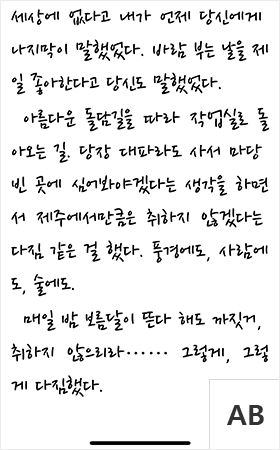 세상에 없다고 내가 언제 당신에게
나지막이 말했었다. 바람 부는 날을 제
일 좋아한다고 당신도 말했었다.
아름다운 돌담길을 따라 작업실로 돌
아오는 길. 당장 대파라도 사서 마당
빈 곳에 심어봐야겠다는 생각을 하면
서 제주에서만큼은 취하지 않겠다는
다짐 같은 걸 했다. 풍경에도, 사람에
도, 술에도.
매일 밤 보름달이 뜬다 해도 까짓거,
취하지 않으리라…… 그렇게, 그렇
게 다짐했다.
AB